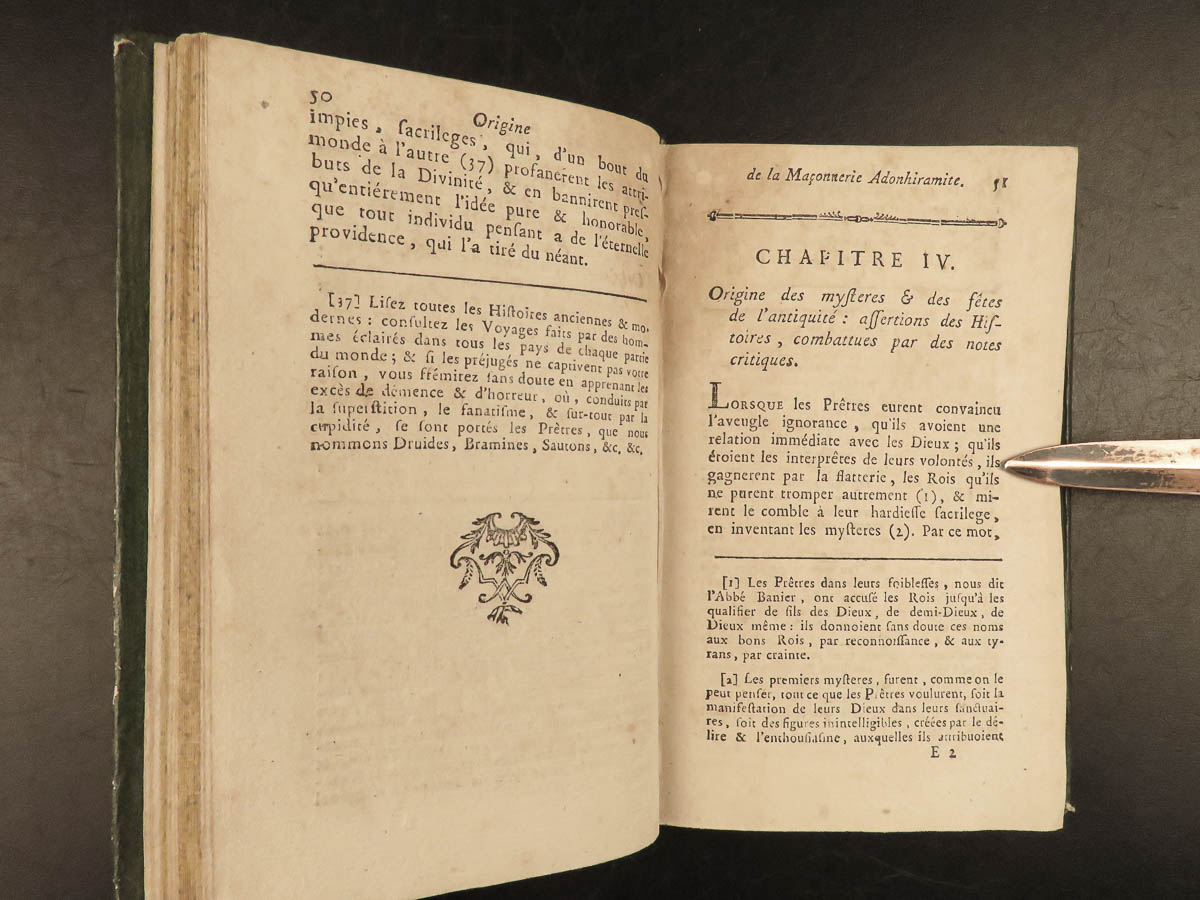 50
Origine
impies, ſacrileges, qui, d'un bout du
monde à l'autre (37) profanerent les attri-
buts de la Divinité, & en bannirent preſ-
qu'entiérement l'idée pure & honorable,
que tout individu penſant a de l'éternelle
providence, qui l'a tiré du néant.
[37] Liſez toutes les Hiſtoires anciennes & mo-
dernes : conſultez les Voyages faits par des hom-
mes éclairés dans tous les pays de chaque partie
du monde ; & ſi les préjugés ne captivent pas votre
raiſon, vous frémirez ſans doute en apprenant les
excès de démence & d'horreur, où, conduits par
la ſuperſtition, le fanatiſme, & ſur-tout par la
cupidité, ſe ſont portés les Prêtres, que nous
nommons Druides, Bramines, Santons, &c, &c.
de la Maçonnerie Adonhiramite. 51
CHAPITRE IV.
Origine des myſteres & des fêtes
de l'antiquité : aſſertions des Hiſ-
toires, combattues par des notes
critiques.
LORSQUE les Prêtres eurent convaincu
l'aveugle ignorance, qu'ils avoient une
relation immédiate avec les Dieux ; qu'ils
étoient les interprêtes de leurs volontés, ils
gagnerent par la flatterie, les Rois qu'ils
ne purent tromper autrement (1), & mi-
rent le comble à leur hardieſſe ſacrilege,
en inventant les myſteres (2). Par ce mot,
[1] Les Prêtres dans leurs foibleſſes, nous dit
l'Abbé Banier, ont accuſé les Rois juſqu'à les
qualifier de fils des Dieux, de demi-Dieux, de
Dieux même : ils donnoient ſans doute ces noms
aux bons Rois, par reconnoiſſance, & aux ty-
rans, par crainte.
[2] Les premiers myſteres, furent, comme on le
peut penſer, tout ce que les Prêtres voulurent, ſoit la
manifeſtation de leurs Dieux dans leurs ſanctuai-
res, ſoit des figures inintelligibles, créées par le dé-
lire & l'enthouſiaſme, auxquelles ils attribuoient
E 2